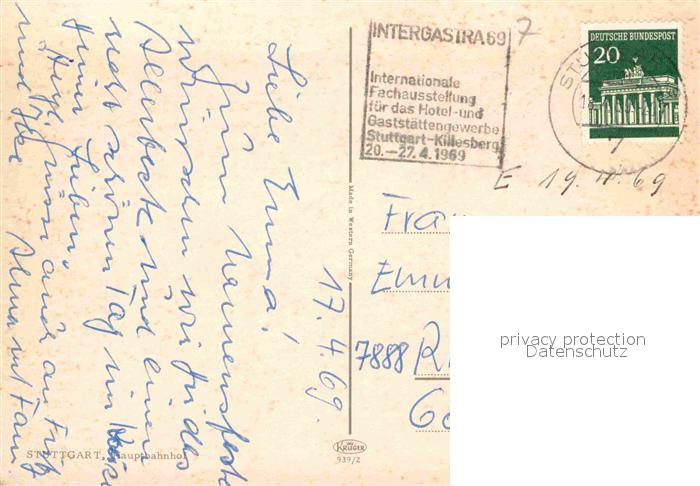 17.4.69.
Liebe Emma!
Zum Namensfeste
wünschen wir Dir das
Allerbeste und einen
recht schönen Tag im Kreise
Deiner Lieben
Herzl. Grüsse auch an Fritz
und
Anna mit Fam.
STUTTGART, Hauptbahnhof
Made in Western Germany
KRÜGER
939/2
INTERGASTRA 69
Internationale
Fachausstellung
für das Hotel- und
Gaststättengewerbe
Stuttgart-Killesberg
20.-27.4.1969
7
DEUTSCHE BUNDESPOST
20
7
E 19.4.69
Frau
Emm
7888 R
privacy protection
Datenschutz